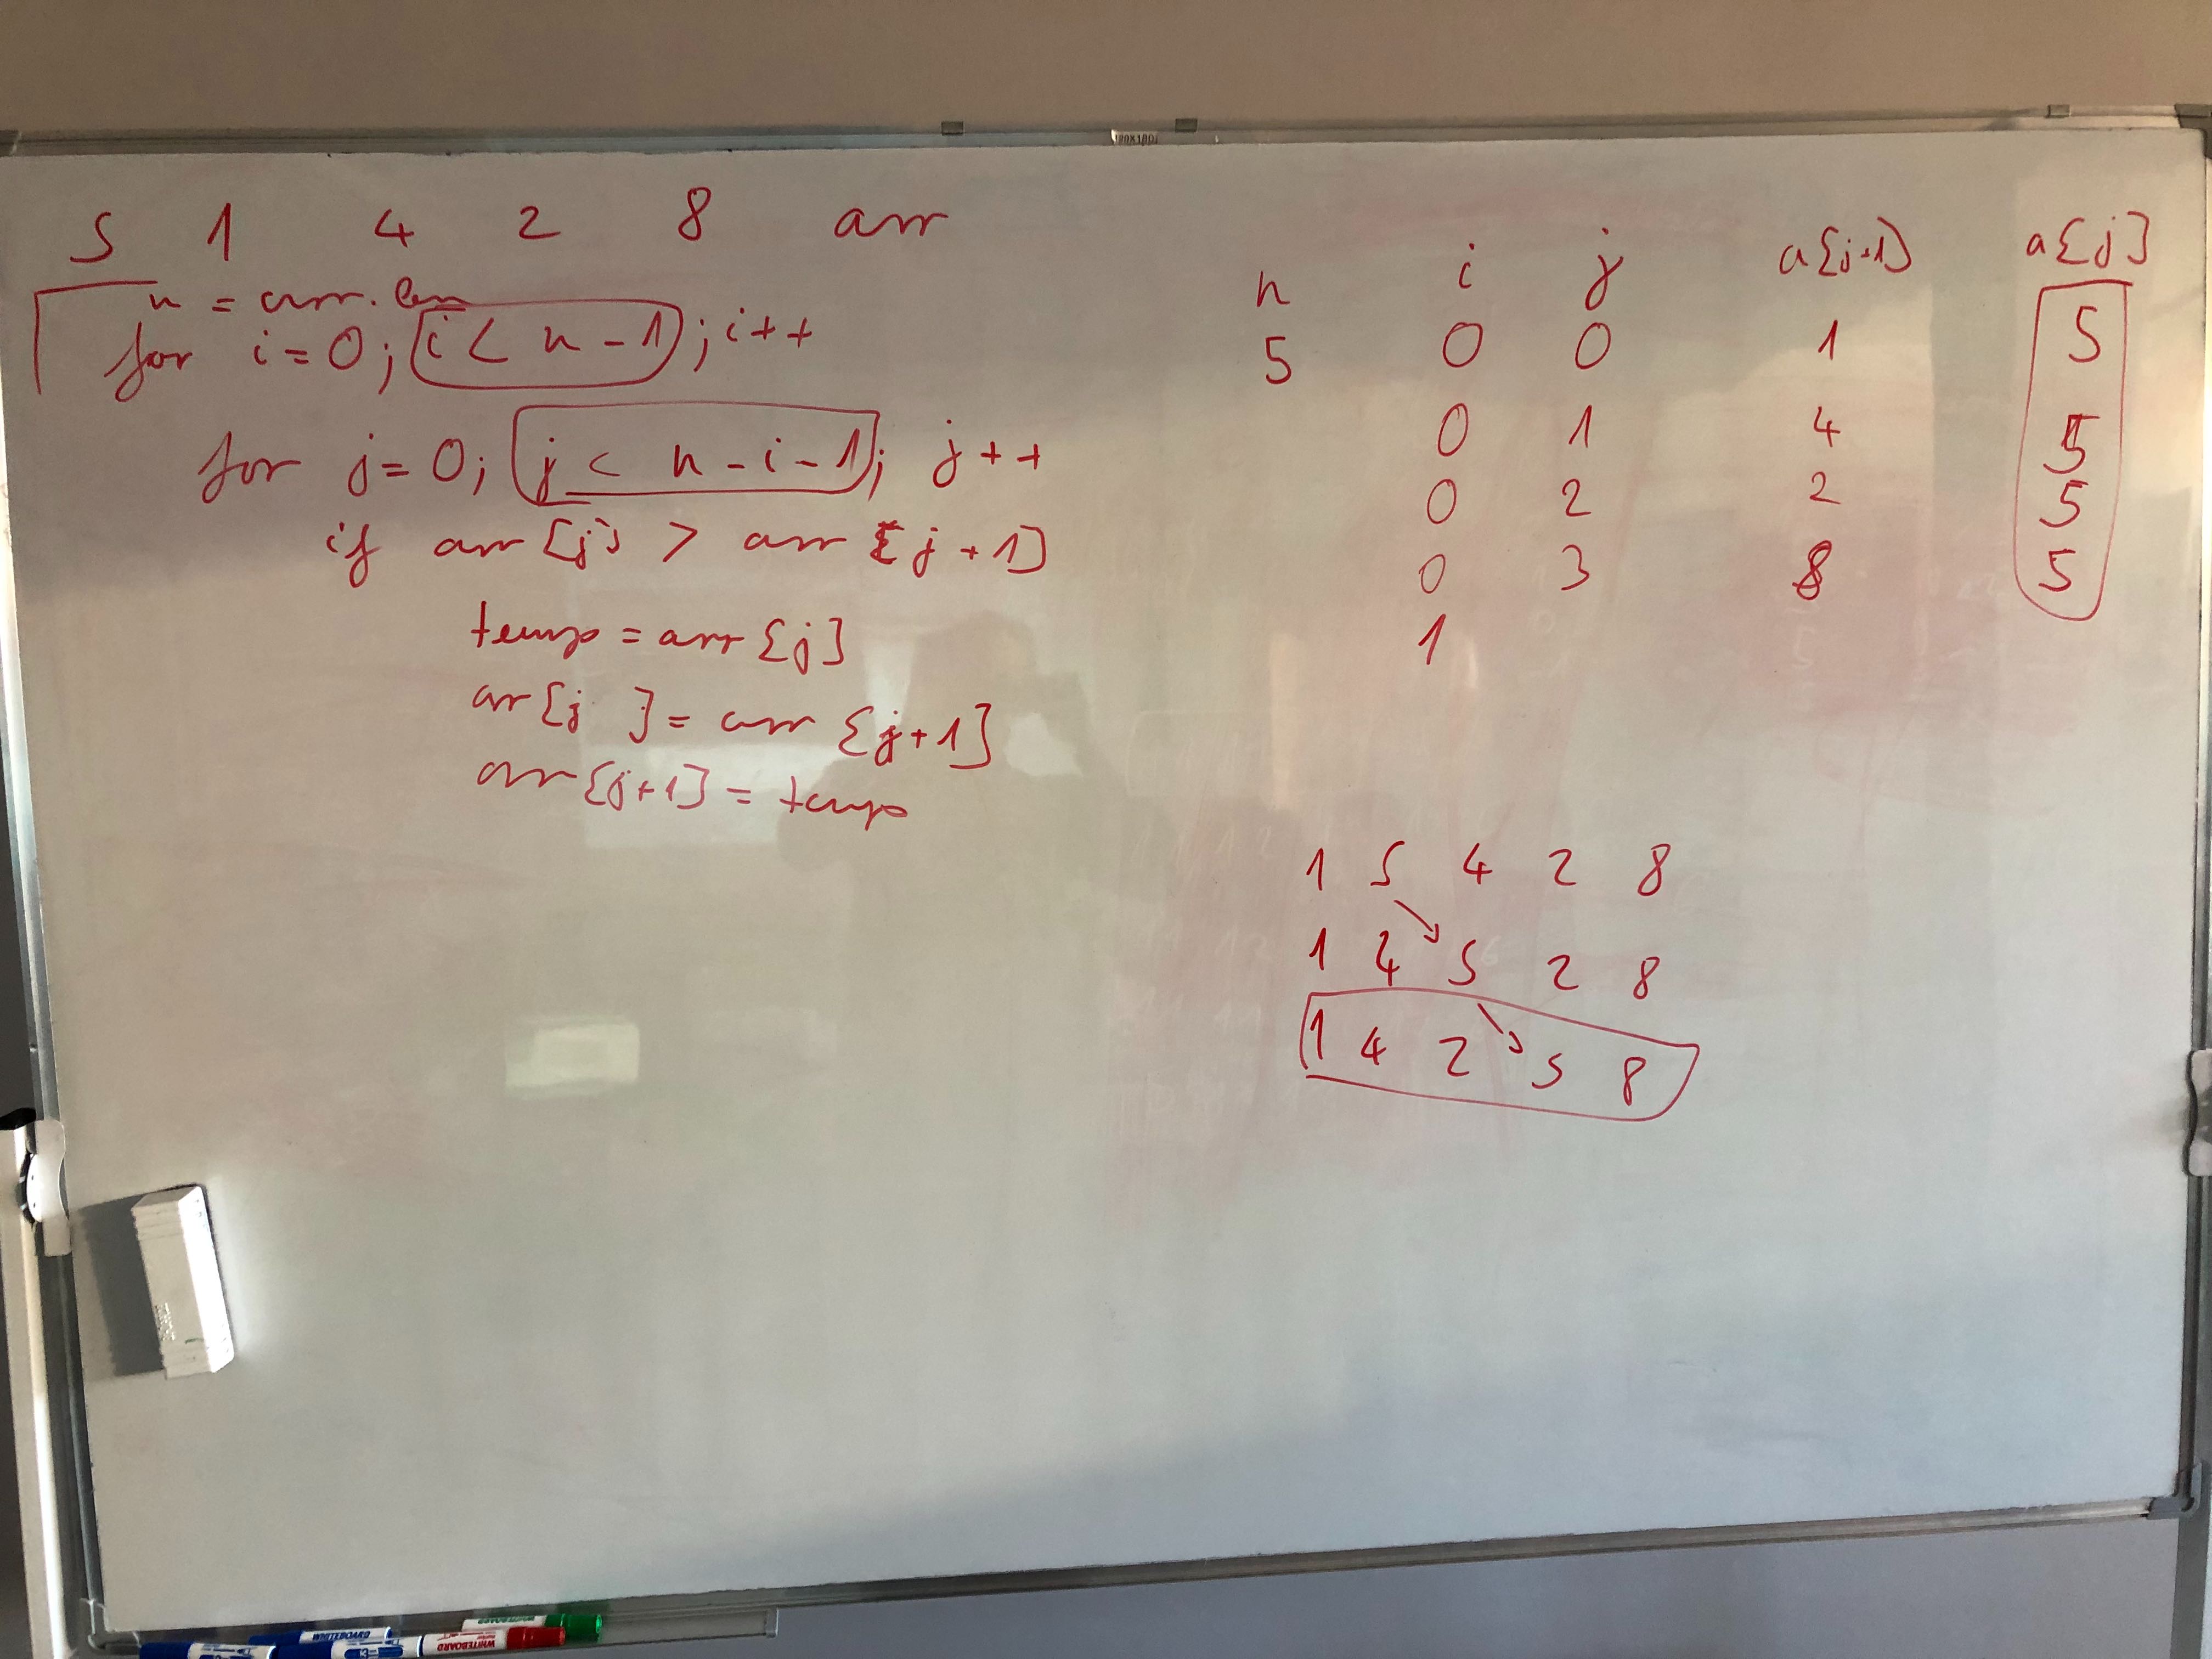 5 1 4 2 8 arr
n = arr.len
for i=0; i < n-1; i++
for j=0; j < n-i-1; j++
if arr[j] > arr[j+1]
temp = arr[j]
arr[j ] = arr[j+1]
arr[j+1] = temp
n i j a[j+1] a[j]
5 0 0 1 5
0 1 4 5
0 2 2 5
0 3 8 5
1
1 5 4 2 8
1 4 5 2 8
1 4 2 5 8
WHITEBOARD
WHITEBOARD
WHITEBOARD